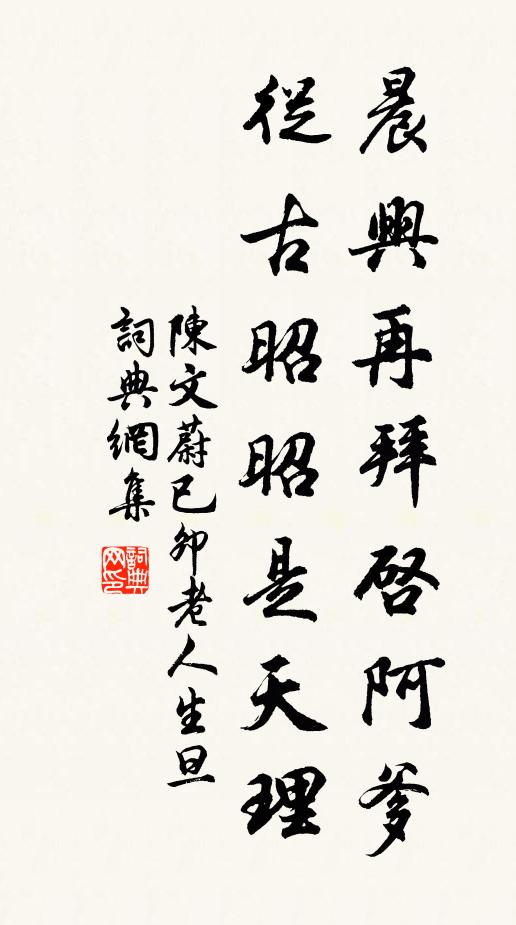 晨興再拜啓阿爹
從古昭昭是天理
陳文蔚已卯老人生旦
詞典網集
詞典网印